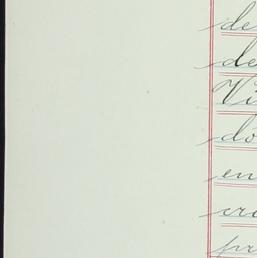 de
de
Vi
do
en
cro
pr